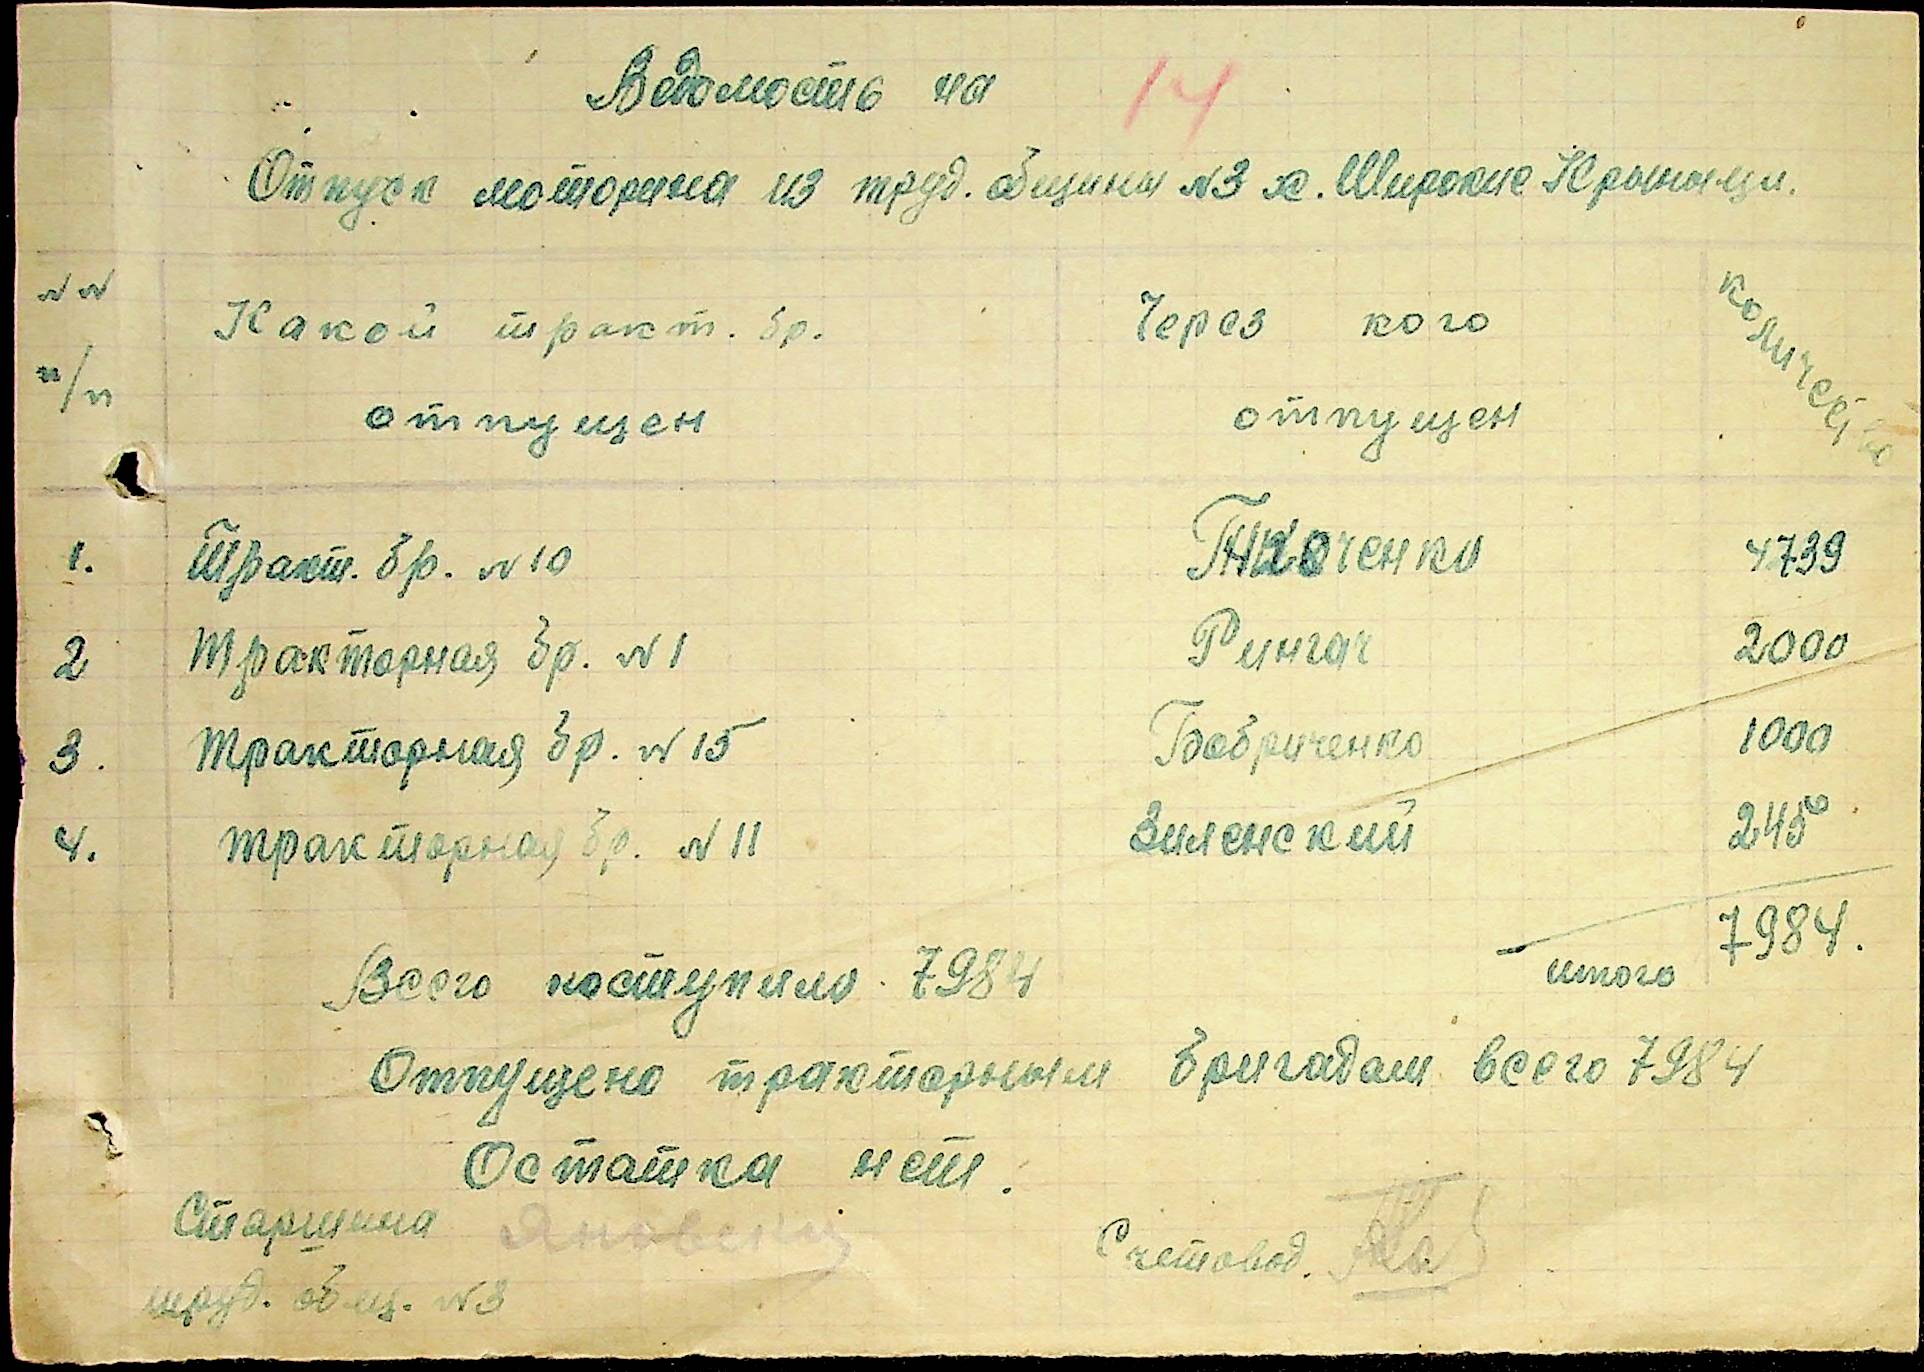 Ведомость на 14
Отпуск моторина из труд. общины №3 х. Широкие Крыныци.
№№ п/п Какой тракт. бр. отпущен Через кого отпущен количество
1. Тракт. бр. №10 Ткаченко 4739
2 Тракторная бр. №1 Рингач 2000
3. Тракторная бр. №15 Бобриченко 1000
4. тракторная бр. №11 Зиленский 245
итого 7984.
Всего поступило 7984
Отпущено тракторным бригадам всего 7984
Остатка нет.
Старшина Яновский Счетовод.
труд. общ. №3